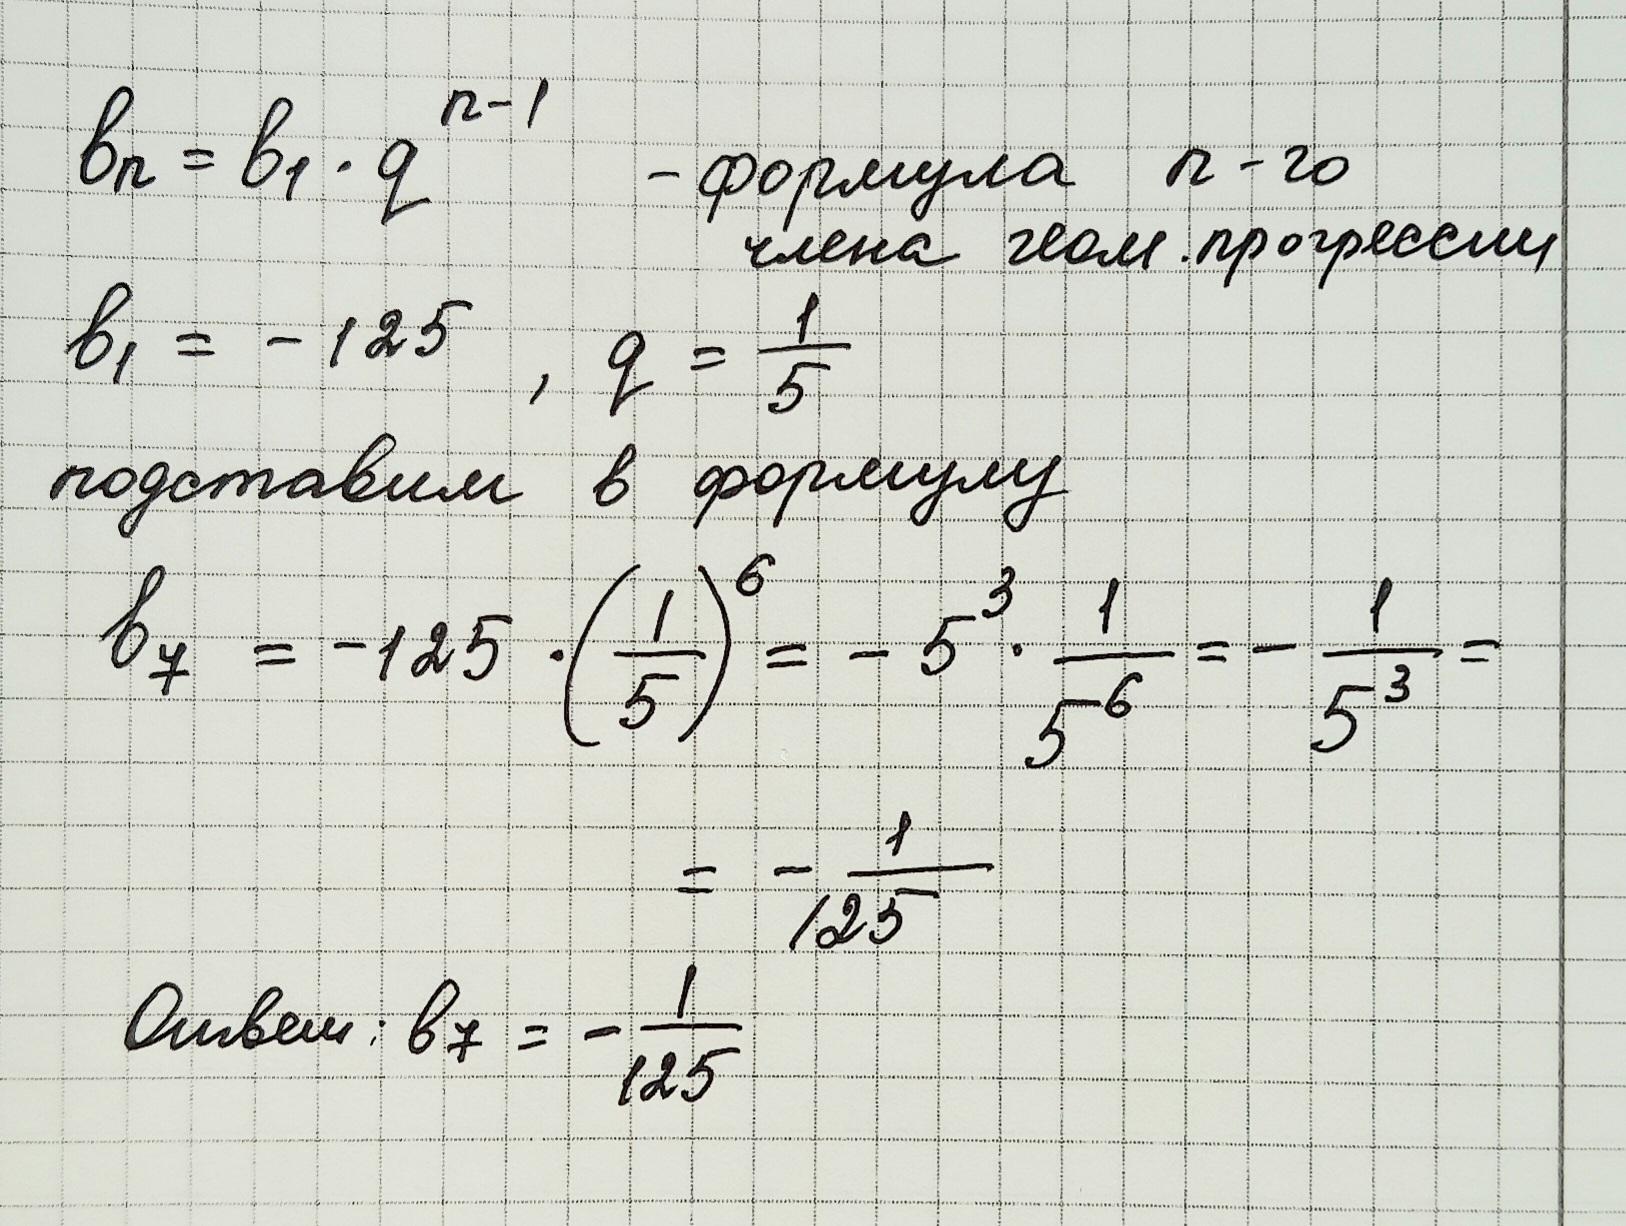 bₙ = b₁ · qⁿ⁻¹ - формула n-го
члена геом. прогрессии
b₁ = -125 , q = 1/5
подставим в формулу
b₇ = -125 · (1/5)⁶ = - 5³ · 1/5⁶ = - 1/5³ =
= - 1/125
Ответ: b₇ = - 1/125